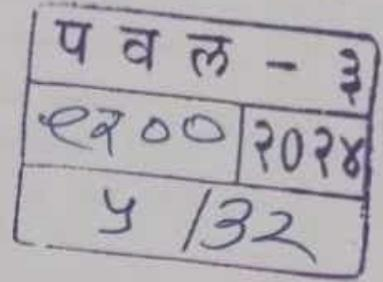 प व ल - ३
९२०० २०२४
५ /32